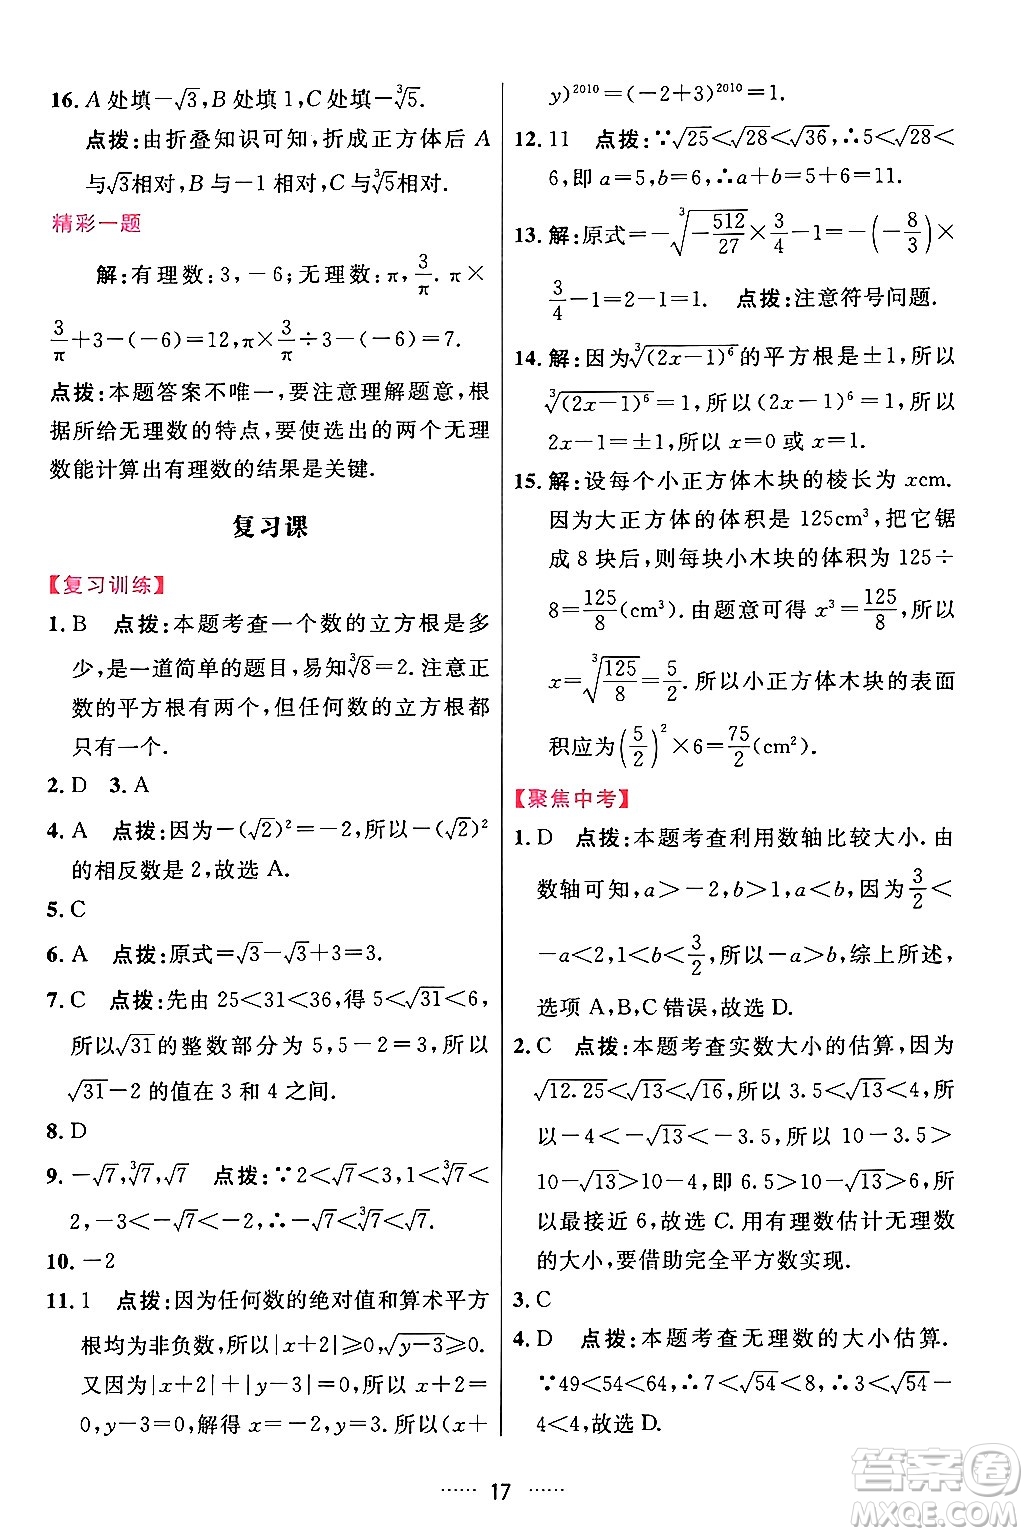 16. A 处填−√3,B 处填 1,C 处填−∛5.
点拨:由折叠知识可知,折成正方体后 A
与√3相对,B 与−1 相对,C 与∛5相对.
精彩一题
解:有理数:3,−6;无理数:π,3/π. π×
3/π+3−(−6)=12,π×3/π÷3−(−6)=7.
点拨:本题答案不唯一,要注意理解题意,根
据所给无理数的特点,要使选出的两个无理
数能计算出有理数的结果是关键.
复习课
【复习训练】
1. B 点拨:本题考查一个数的立方根是多
少,是一道简单的题目,易知∛8=2. 注意正
数的平方根有两个,但任何数的立方根都
只有一个.
2. D 3. A
4. A 点拨:因为−(√2)²=−2,所以−(√2)²
的相反数是 2,故选 A.
5. C
6. A 点拨:原式=√3−√3+3=3.
7. C 点拨:先由 25<31<36,得 5<√31<6,
所以√31的整数部分为 5,5−2=3,所以
√31−2 的值在 3 和 4 之间.
8. D
9. −√7,∛7,√7 点拨:∵2<√7<3,1<∛7<
2,−3<−√7<−2,∴−√7<∛7<√7.
10. −2
11. 1 点拨:因为任何数的绝对值和算术平方
根均为非负数,所以|x+2|≥0,√(y−3)≥0.
又因为|x+2|+|y−3|=0,所以 x+2=
0,y−3=0,解得 x=−2,y=3,所以(x+
y)²⁰¹⁰=(−2+3)²⁰¹⁰=1.
12. 11 点拨:∵√25<√28<√36,∴5<√28<
6,即 a=5,b=6,∴a+b=5+6=11.
13. 解:原式=−∛(−512/27)×3/4−1=−(−8/3)×
3/4−1=2−1=1. 点拨:注意符号问题.
14. 解:因为∛((2x−1)⁶)的平方根是±1,所以
∛((2x−1)⁶)=1,所以(2x−1)⁶=1,所以
2x−1=±1,所以 x=0 或 x=1.
15. 解:设每个小正方体木块的棱长为 xcm.
因为大正方体的体积是 125cm³,把它锯
成 8 块后,则每块小木块的体积为 125÷
8=125/8(cm³). 由题意可得 x³=125/8,所以
x=∛(125/8)=5/2. 所以小正方体木块的表面
积应为(5/2)²×6=75/2(cm²).
【聚焦中考】
1. D 点拨:本题考查利用数轴比较大小. 由
数轴可知,a>−2,b>1,a<b,因为3/2<
−a<2,1<b<3/2,所以−a>b,综上所述,
选项 A,B,C 错误,故选 D.
2. C 点拨:本题考查实数大小的估算,因为
√12.25<√13<√16,所以 3.5<√13<4,所
以−4<−√13<−3.5,所以 10−3.5>
10−√13>10−4,即 6.5>10−√13>6,所
以最接近 6,故选 C. 用有理数估计无理数
的大小,要借助完全平方数实现.
3. C
4. D 点拨:本题考查无理数的大小估算.
∵49<54<64,∴7<√54<8,∴3<√54−
4<4,故选 D.
······ 17 ······
答案圈
MXQE.COM